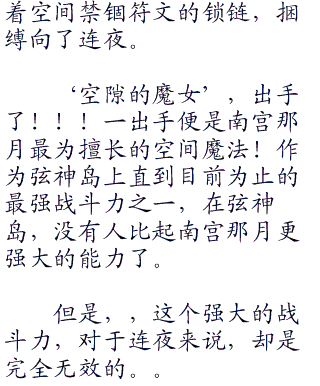 着空间禁锢符文的锁链，捆
缚向了连夜。
‘空隙的魔女’，出手
了！！！一出手便是南宫那
月最为擅长的空间魔法！作
为弦神岛上直到目前为止的
最强战斗力之一，在弦神
岛，没有人比起南宫那月更
强大的能力了。
但是，，这个强大的战
斗力，对于连夜来说，却是
完全无效的。。